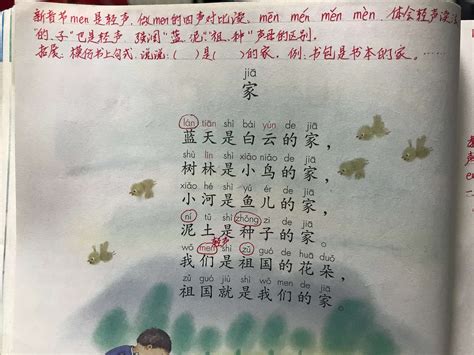 新音节men是轻声，做men的四声对比读，mēn mén měn mèn，体会轻声读法
"的、子"也是轻声 强调"蓝、泥、祖、种"声母的区别。
拓展：模仿书上句式，说说：（ ）是（ ）的家，例：书包是书本的家。
jiā
家
lán tiān shì bái yún de jiā
蓝天是白云的家，
shù lín shì xiǎo niǎo de jiā
树林是小鸟的家，
xiǎo hé shì yú ér de jiā
小河是鱼儿的家，
ní tǔ shì zhǒng zi de jiā
泥土是种子的家。
轻声
wǒ men shì zǔ guó de huā duǒ
我们是祖国的花朵，
zǔ guó jiù shì wǒ men de jiā
祖国就是我们的家。